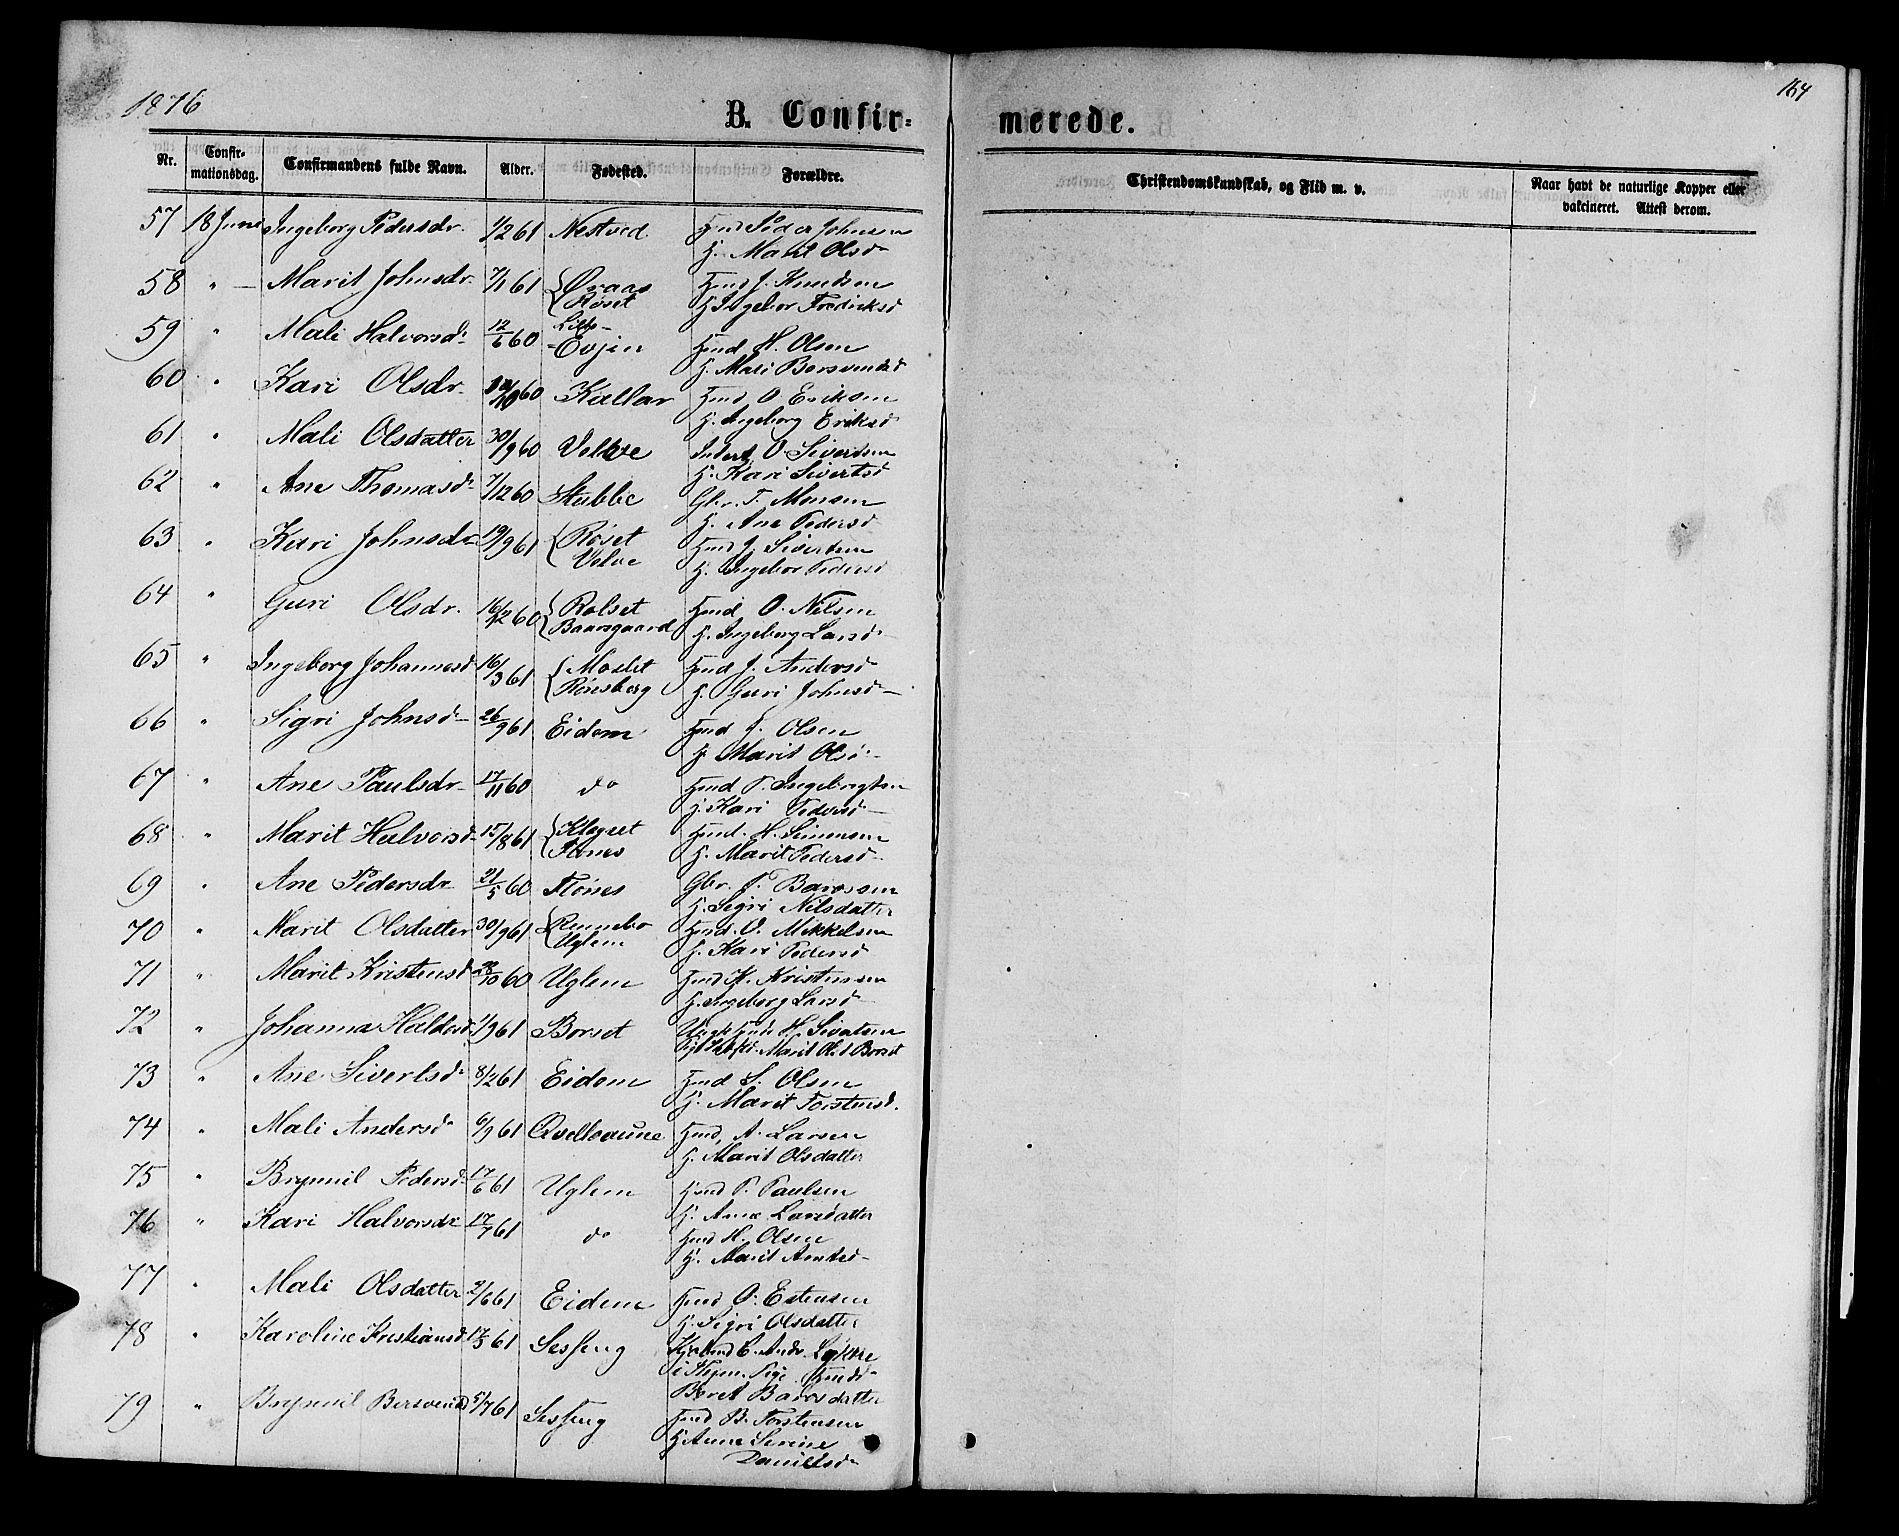 1876
164
B. Confir=
merede.
Nr. Confir- mationsdag. Confirmandens fulde Navn. Alder. Fødested. Forældre. Christendomskundskab, og Flid m. v. Naar havt de naturlige Kopper eller vakcineret. Attest derom.
57 18 Juni Ingeborg Pedersdr. 1/2 61 Nestved Hmd Peder Johnsen
H. Marit Olsd
58 " Marit Johnsdr. 7/1 61 Øraas Hmd J. Knudsen
Røset H Ingebor Fredriksd
59 " Mali Halvorsdr 12/6 60 Lille- Evjen Hmd H. Olsen
H. Mari Bersvendsd
60 " Kari Olsdr. 60 Kallar Hmd O Eriksen
H. Ingeborg Eriksd
61 " Mali Olsdatter 30/9 60 Velve Inderst O Sivertsen
H. Kari Sivertsd
62 " Ane Thomasdr 7/12 60 Stubbe Gbr. T. Monsen
H. Ane Pedersd
63 " Kari Johnsdr 19/9 61 Røset Hmd J. Sivertsen
Velve H. Ingebor Pedersd
64 " Guri Olsdr. 16/12 60 Rolset Hmd O. Nilsen
Baarsgaard H. Ingeborg Larsd
65 " Ingeborg Johannesd 16/3 61 Moslet Hmd J. Andersd
Rønsberg H. Guri Johnsd
66 " Sigri Johnsd 26/9 61 Eidem Hmd J. Olsen
H Marit Olsd
67 " Ane Paulsdr 17/11 60 do Hmd P. Ingebrigtsen
H. Kari Pedersd
68 " Marit Halvorsd 15/8 61 Klegset Hmd. H. Simonsen
Flønes H. Marit Pedersd
69 " Ane Pedersdr 21/5 60 Flønes Gbr. P. Baarssen
H. Segri Nilsdatter
70 " Marit Olsdatter 30/9 61 Rennebo Hmd. O. Mikkelsen
Uglem H. Kari Pedersd
71 " Marit Kristensd 28/10 60 Uglem Hmd K. Kristensen
H. Ingeborg Larsd
72 " Johanna Haldosd 1/9 61 Borset H. Sivertsen
Marit Olsd Borset
73 " Ane Sivertsd 8/2 61 Eidem Hmd S. Olsen
H. Marit Torstensd.
74 " Mali Andersd 6/9 61 Qvelloaune Hmd, A. Larsen
H. Marit Olsdatter
75 " Brynnil Pedersd 17/6 61 Uglem Hmd P. Paulsen
H. Anne Larsdatter
76 " Kari Halvorsdr 17/7 61 do Hmd H. Olsen
H. Marit Arntsd
77 " Mali Olsdatter 2/6 61 Eidem Hmd O. Estensen
H. Sigri Olsdatter
78 " Karoline Kristiansd 17/5 61 Sesseng C. Andr Løkke
i Stjør. Pige
Beret Baarsdatter
79 " Brynnil Bersvend 5/7 61 Sesseng Hmd B. Torstensen
H Anne Serine
Danielsd